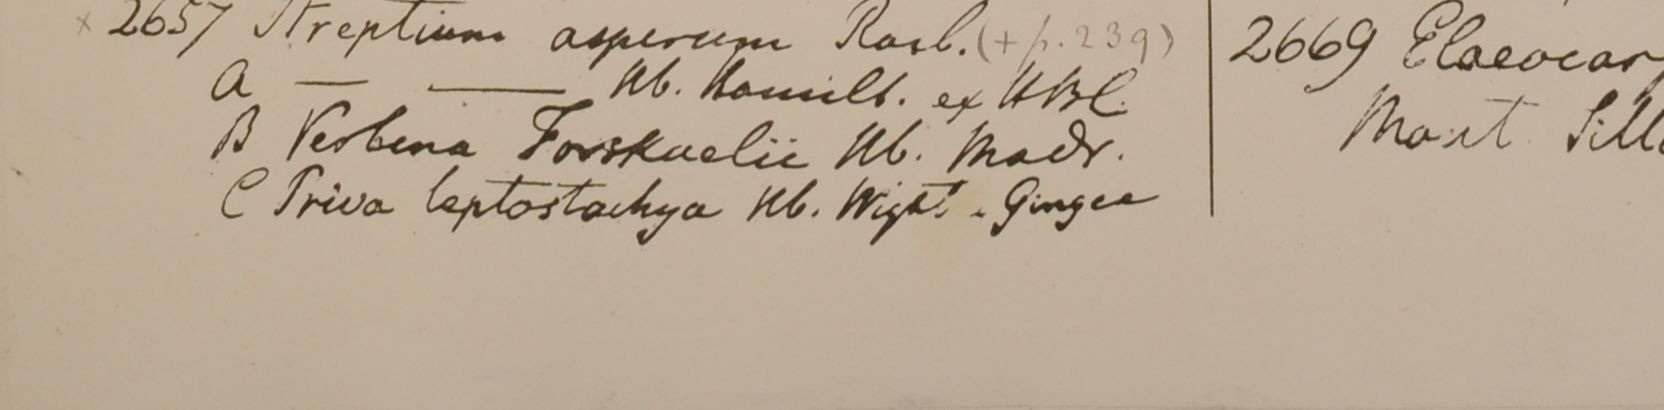 x 2657 Streptium asperum Roxb. (+ p. 239)
A — —— Hb. Hamilt. ex HBC.
B Verbena Forskaelii Hb. Madr.
C Priva leptostachya Hb. Wight - Gingee
2669 Elaeocar
Mont Sill